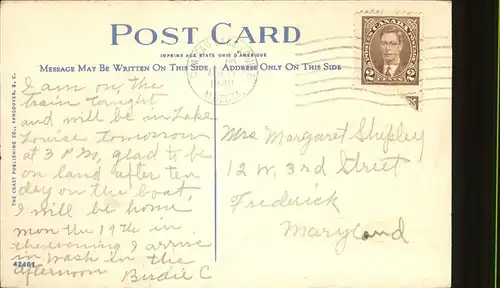 POST CARD
IMPRIMÉ AUX ETATS UNIS D'AMERIQUE
MESSAGE MAY BE WRITTEN ON THIS SIDE
ADDRESS ONLY ON THIS SIDE
POSTES CANADA POSTAGE
2 CENTS 2
THE COAST PUBLISHING CO., VANCOUVER, B. C.
I am on, the
train tonight
and will be in Lake
Louise tomorrow
at 3 P.M, glad to be
on land after ten
day on the boat,
I will be home
mon the 19th in
the evening I arrive
in wash in the
afternoon
Birdie C
42461
Mrs Margaret Shipley
12 W, 3rd Street
Frederick
Maryland